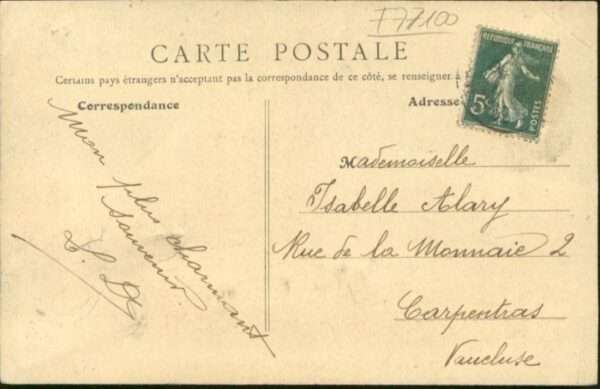 F77100
CARTE POSTALE
Certains pays étrangers n'acceptant pas la correspondance de ce côté, se renseigner à
Correspondance
Adresse
REPUBLIQUE FRANÇAISE
5c
POSTES
Mon plus charmant
Souvenir.
Mademoiselle
Isabelle Alary
Rue de la Monnaie 2
Carpentras
Vaucluse